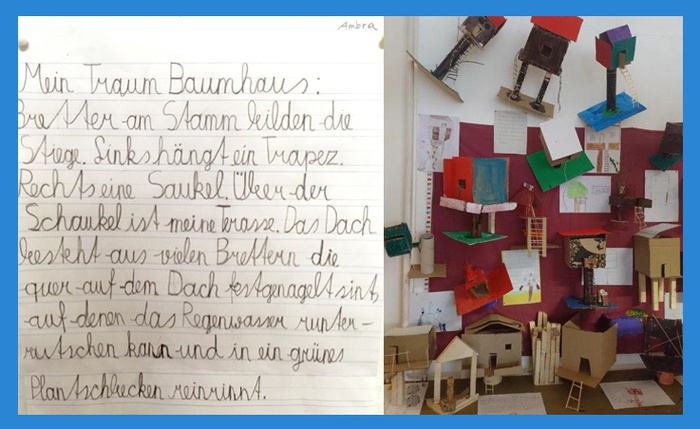 Ambra
Mein Traum Baumhaus:
Bretter am Stamm bilden die
Stiege. Links hängt ein Trapez.
Rechts eine Saukel. Über der
Schaukel ist meine Terasse. Das Dach
besteht aus vielen Brettern die
quer auf dem Dach festgenagelt sint,
auf denen das Regenwasser runter-
rutschen kann und in ein grünes
Plantschbecken reinrinnt.